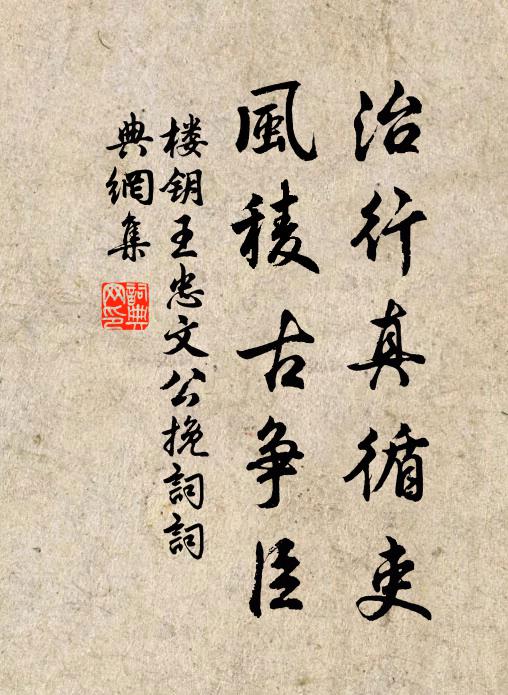 治行真循吏
風稜古争臣
楼钥王忠文公挽詞詞
典網集
詞典网印